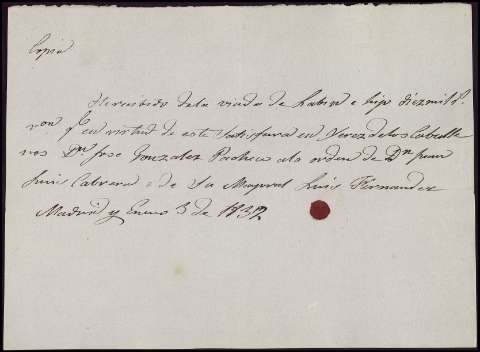 Copia
He recibido de la viuda de Labra e hijo diez mil r.^s
von. q.^e en virtud de este satisfara en Xerez de los Caballe
ros D.^n Jose Gonzalez Pacheco a la orden de D.^n Juan
Luis Cabrera o de su Mayoral Luis Fernandez
Madrid y Enero 3 de 1832